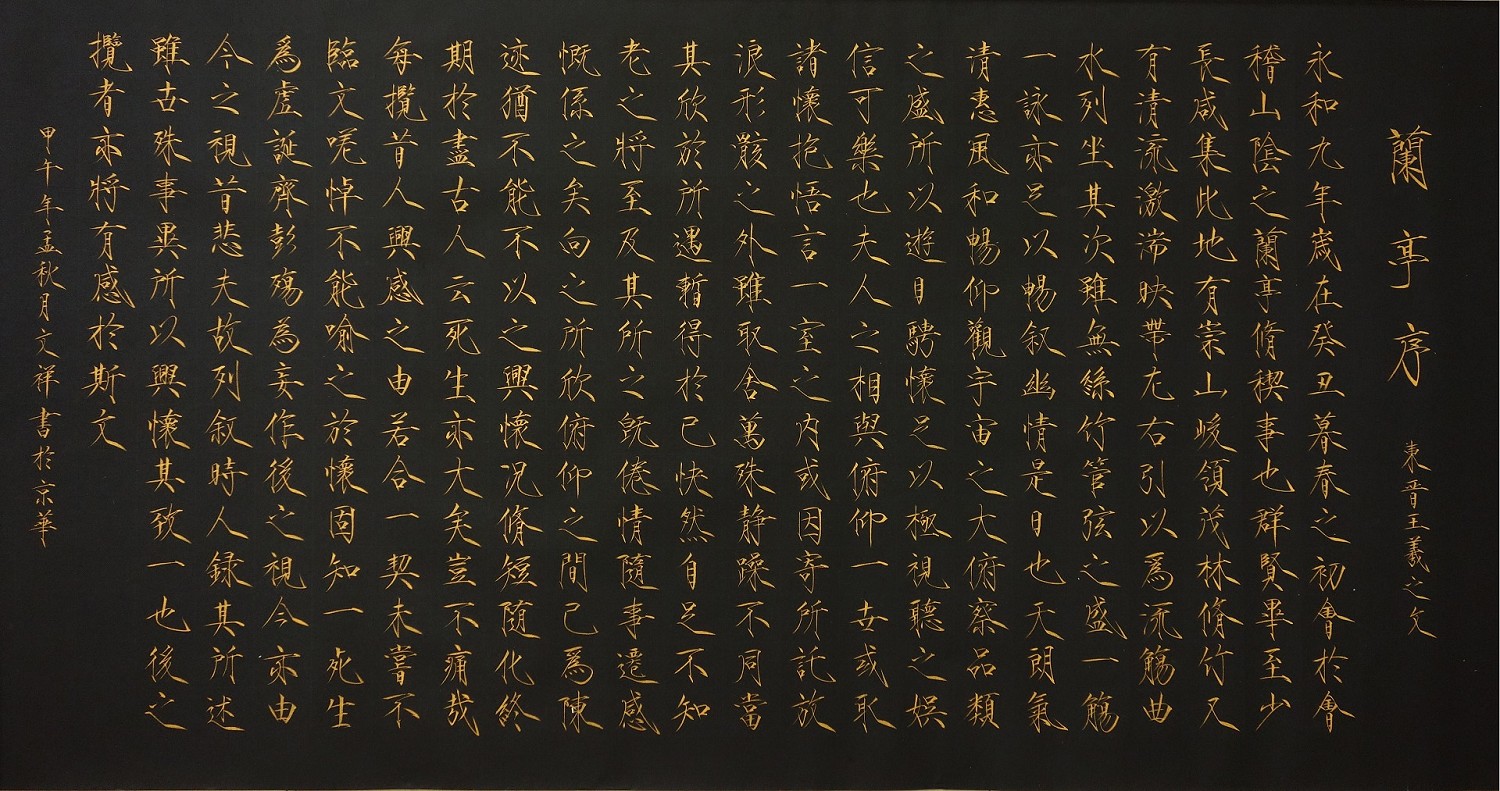 蘭亭序
東晋王羲之文
永和九年歲在癸丑暮春之初會於會
稽山陰之蘭亭脩稧事也群賢畢至少
長咸集此地有崇山峻領茂林脩竹又
有清流激湍映帶左右引以爲流觴曲
水列坐其次雖無絲竹管弦之盛一觴
一詠亦足以暢叙幽情是日也天朗氣
清惠風和暢仰觀宇宙之大俯察品類
之盛所以遊目騁懷足以極視聽之娱
信可樂也夫人之相與俯仰一世或取
諸懷抱悟言一室之内或因寄所託放
浪形骸之外雖取舍萬殊静躁不同當
其欣於所遇暫得於己快然自足不知
老之將至及其所之既倦情隨事遷感
慨係之矣向之所欣俯仰之間已爲陳
迹猶不能不以之興懷况脩短随化終
期於盡古人云死生亦大矣豈不痛哉
每攬昔人興感之由若合一契未嘗不
臨文嗟悼不能喻之於懷固知一死生
爲虚誕齊彭殤為妄作後之視今亦由
今之視昔悲夫故列叙時人録其所述
雖古殊事異所以興懷其致一也後之
攬者亦將有感於斯文
甲午年孟秋月文祥書於京華